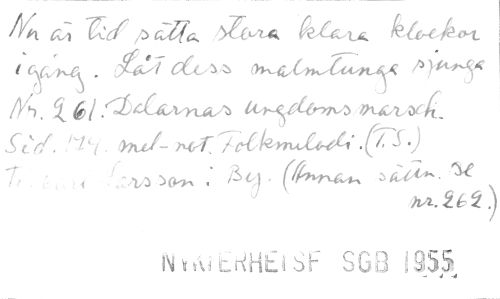 Nu är tid sätta stora klara klockor
igång. Låt dess malmtunga sjunga
Nr. 261. Dalarnas ungdomsmarsch.
Sid. mel-not. Folkmelodi. (T.S.)
Larsson i By. (Annan sättn. se
nr. 262.)
NYKTERHETSF SGB 1955